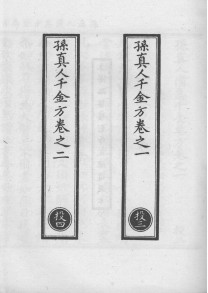 孫真人千金方卷之一
投三
孫真人千金方卷之二
投四